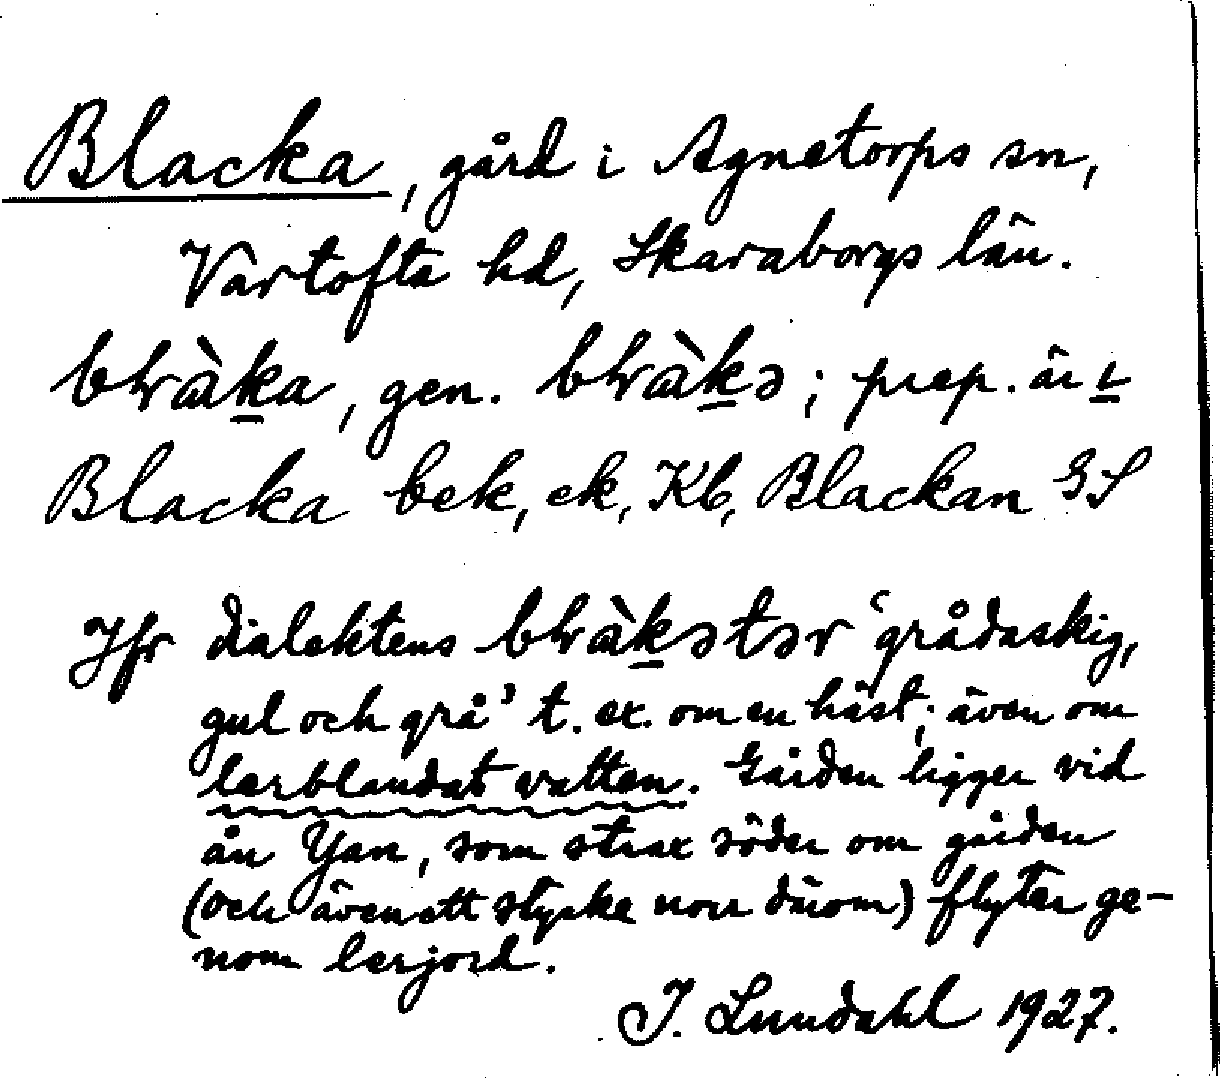 Blacka, gård i Agnetorps sn,
Vartofta hd, Skaraborgs län.
blràka, gen. blràkə; prep. är ı
Blacka bek, ek, Kb, Blackan GS
Jfr dialektens blràkətər 'grådaskig,
gul och grå' t. ex. om en häst; även om
lerblandat vatten. Gården ligger vid
ån Yan, som strax söder om gården
(och även ett stycke norr därom) flyter ge-
nom lerjord.
I. Lundahl 1927.